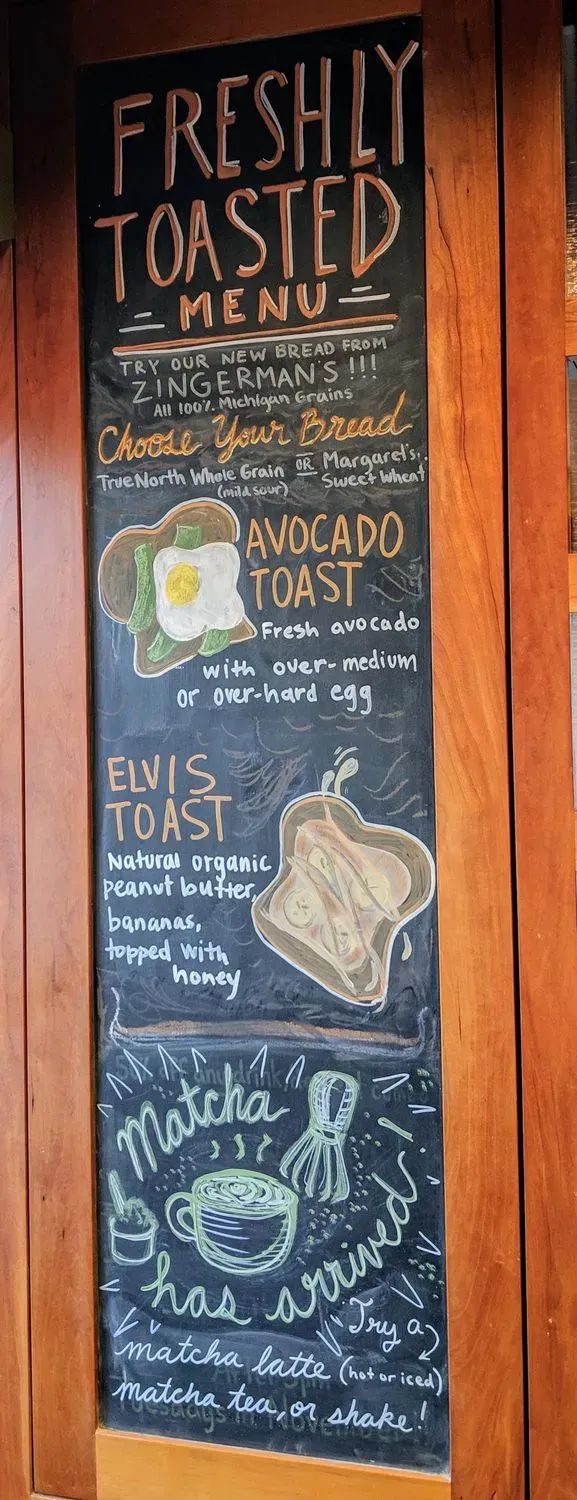 FRESHLY
TOASTED
MENU
TRY OUR NEW BREAD FROM
ZINGERMAN'S !!!
All 100% Michigan Grains
Choose Your Bread
True North Whole Grain OR Margaret's
(mild sour) Sweet Wheat
AVOCADO
TOAST
Fresh avocado
with over-medium
or over-hard egg
ELVIS
TOAST
Natural organic
peanut butter,
bananas,
topped with
honey
Matcha
has arrived
Try a
matcha latte (hot or iced)
matcha tea, or shake!